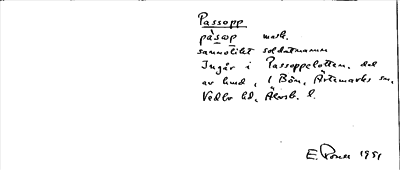 Passopp
påsɷp mark.
sannolikt soldatnamn
Ingår i Passoppslotten, del
av hmd, i Bön, Ärtemarks sn,
Vedbo hd, Älvsb. l.
E. 1951